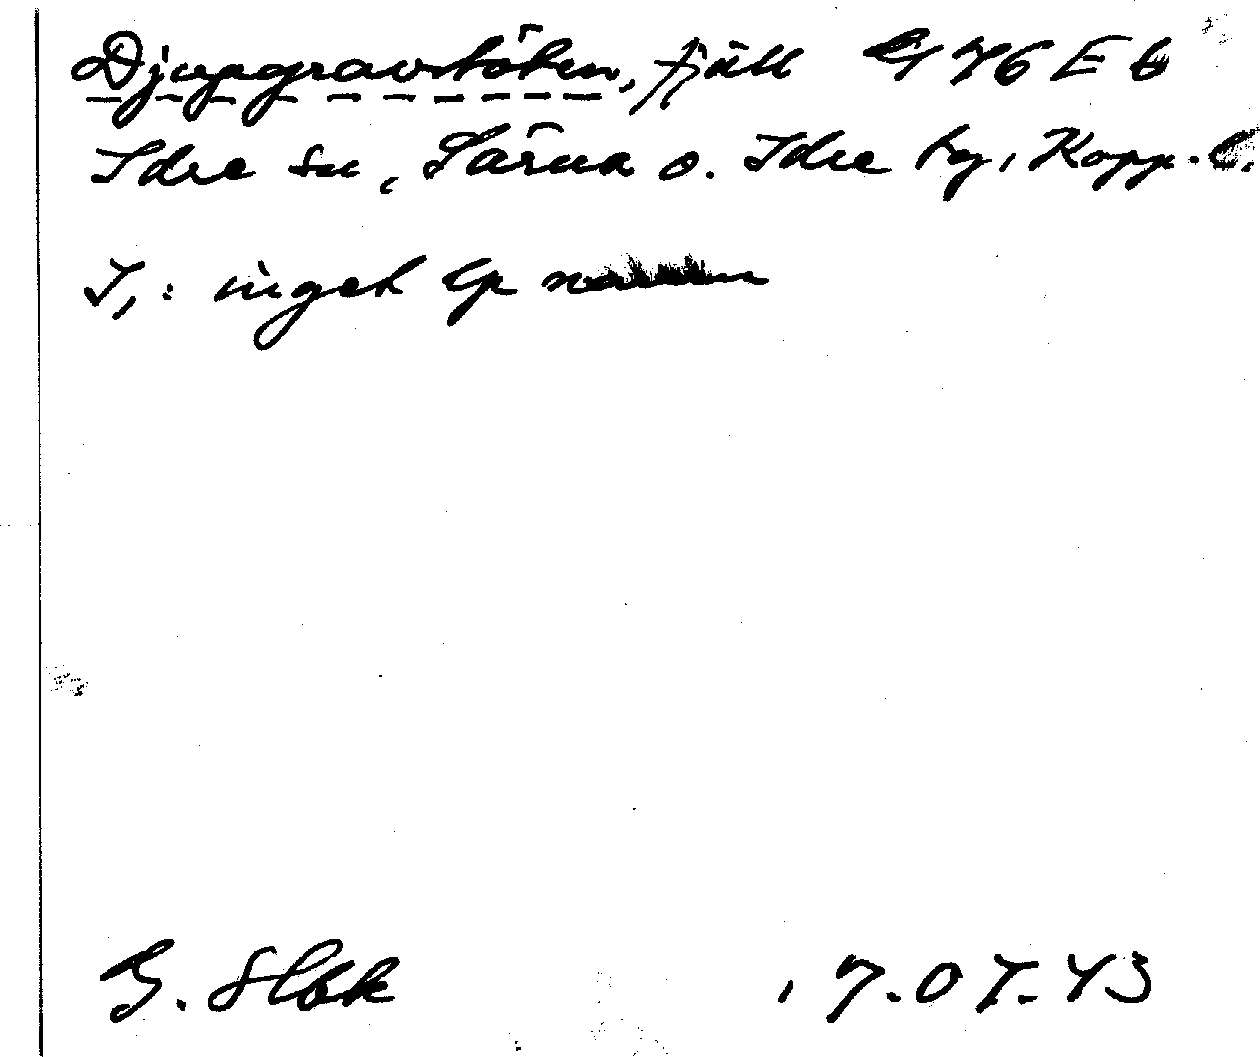 Djupgravstöten, fjäll G 476 E b
Idre sn, Särna o. Idre tg, Kopp. l.
I,: inget lp namn
G. Hbk 17.07.43